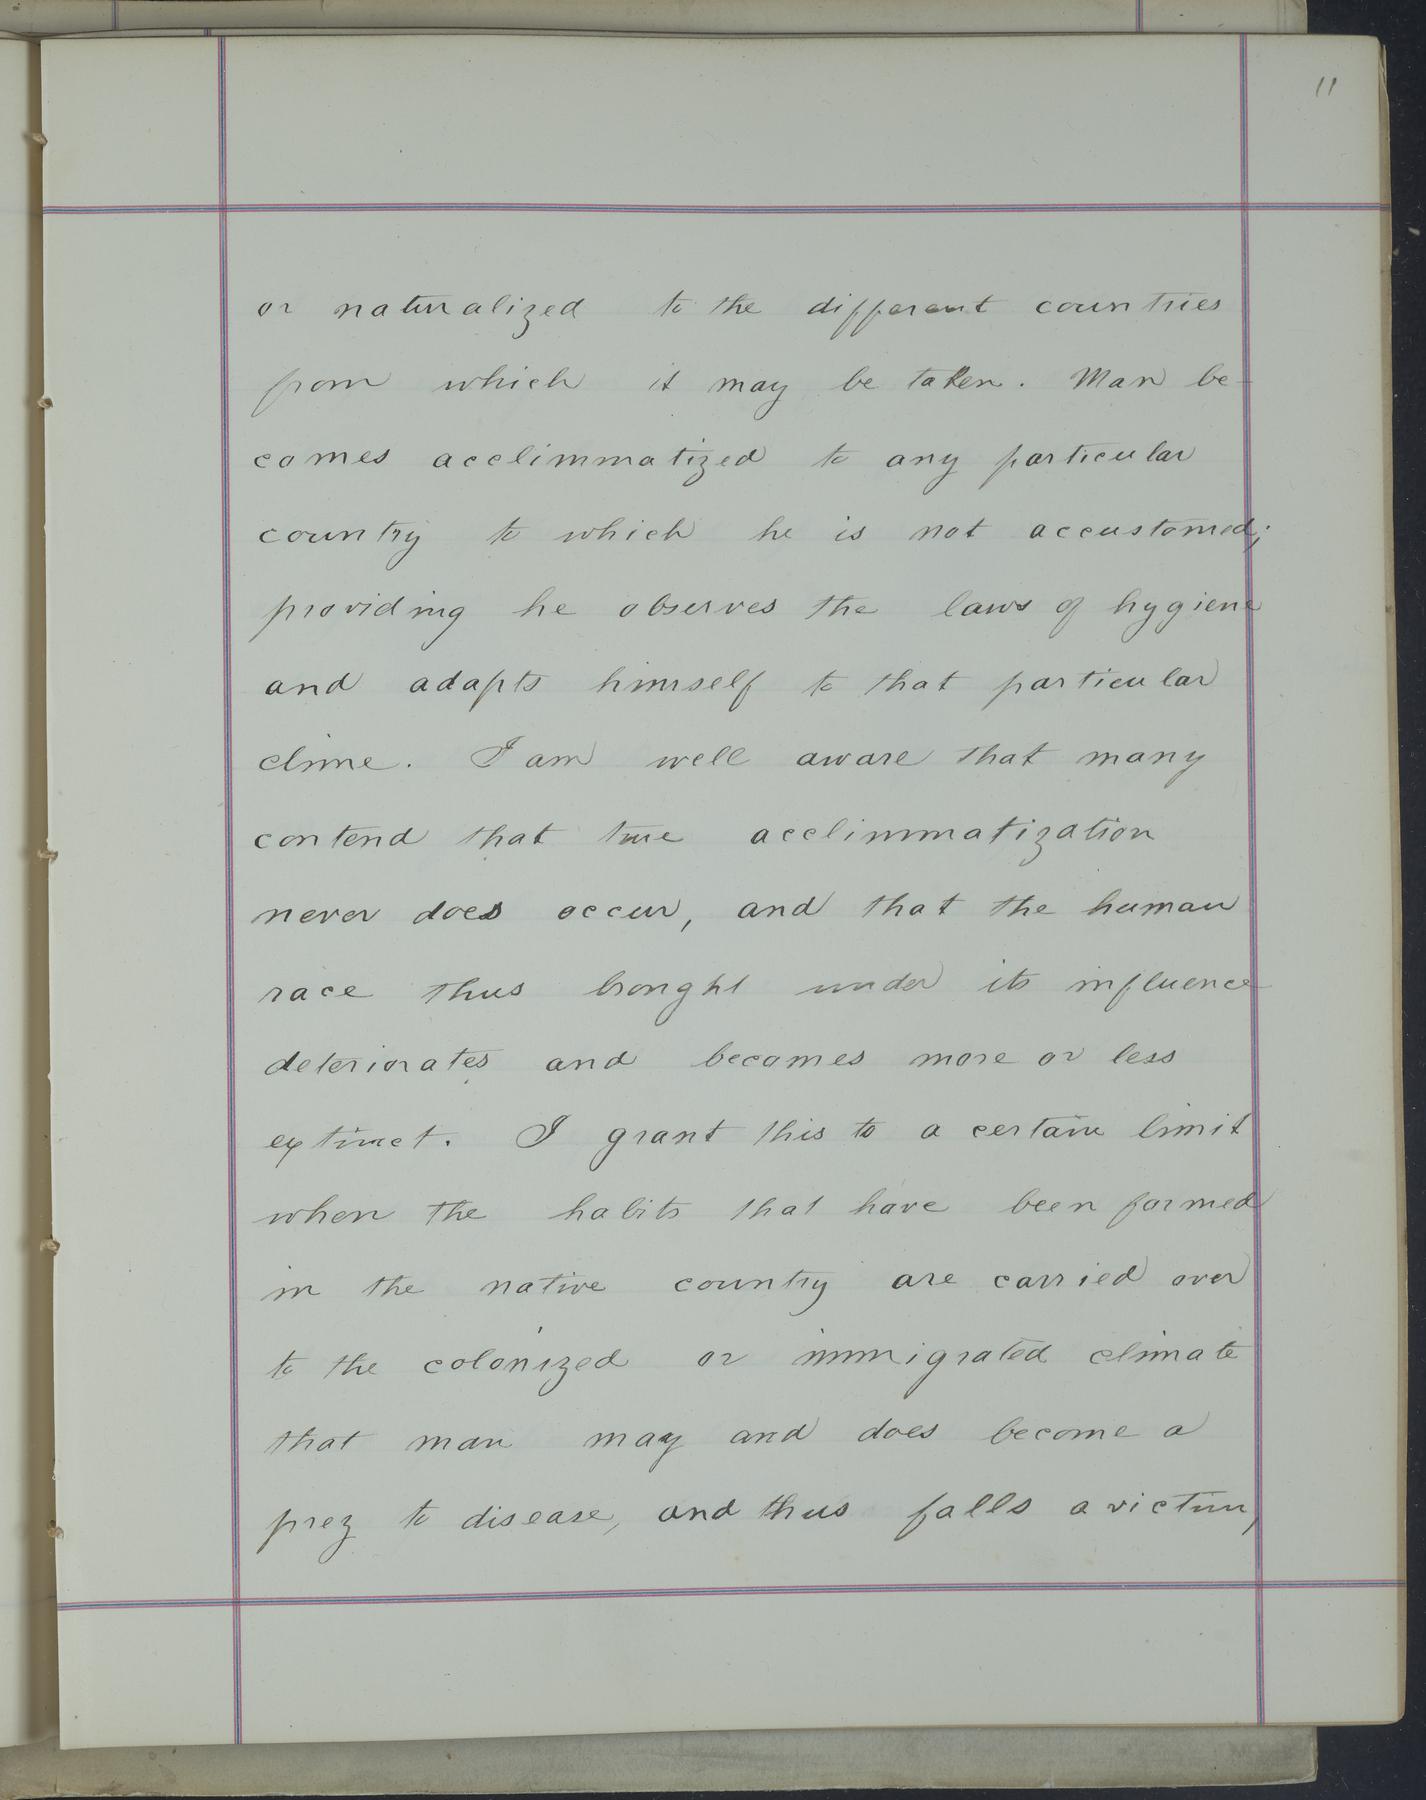 11
or naturalized to the different countries
from which it may be taken. Man be-
comes acclimmatized to any particular
country to which he is not accustomed;
providing he observes the laws of hygiene
and adapts himself to that particular
clime. I am well aware that many
contend that true acclimmatization
never does occur, and that the human
race thus brought under its influence
deteriorates and becomes more or less
extinct. I grant this to a certain limit
when the habits that have been formed
in the native country are carried over
to the colonized or immigrated climate
that man may and does become a
prey to disease, and thus falls a victim,